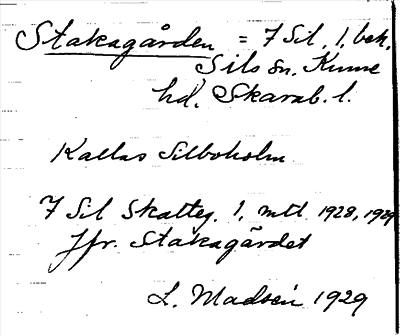 Stakagården = 7 Sil, 1, bek.
Sils sn. Kinne
hd. Skarab. l.
Kallas Silboholm
7 Sil Skatteg. 1, mtl. 1928, 1929
Jfr. Stakagärdet
L. Madsén 1929